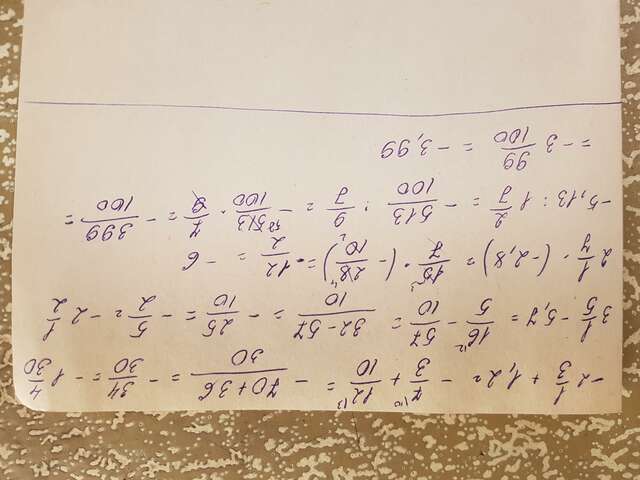 -2 1/3 + 1,2 = - 7/3 + 12/10 = - 70+36/30 = - 34/30 = - 1 4/30
3 1/5 - 5,7 = 16/5 - 57/10 = 32-57/10 = - 25/10 = - 5/2 = - 2 1/2
2 1/7 · (-2,8) = 15/7 · (- 28/10) = - 12/2 = - 6
-5,13 : 1 2/7 = - 513/100 : 9/7 = - 513/100 · 7/9 = - 399/100 =
= -3 99/100 = - 3,99